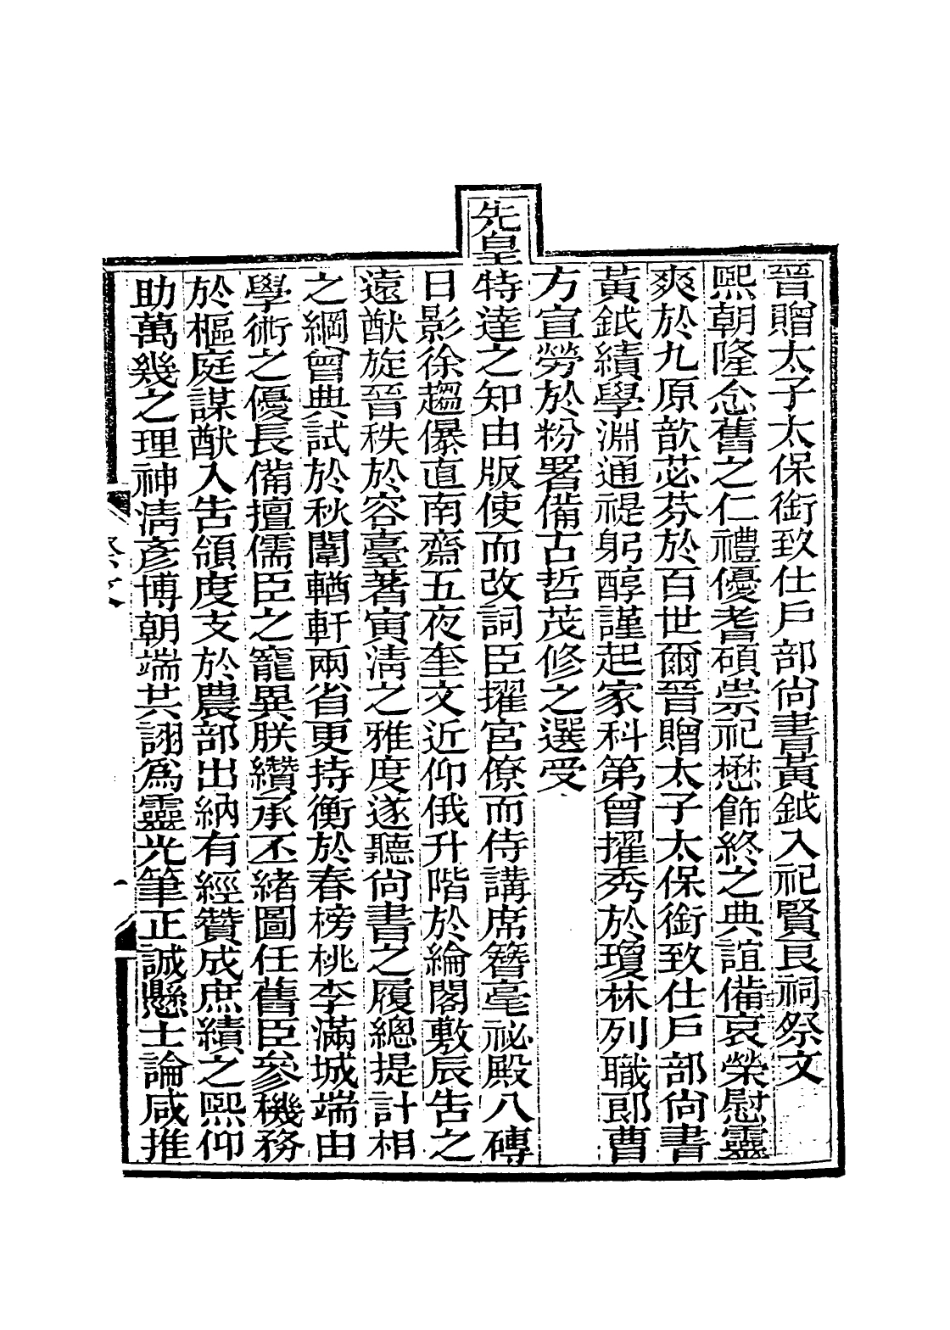 晉贈太子太保銜致仕戶部尚書黃鉞入祀賢良祠祭文
熙朝隆念舊之仁禮優耆碩崇祀懋飾終之典誼備哀榮慰靈
爽於九原歆苾芬於百世爾晉贈太子太保銜致仕戶部尚書
黃鉞績學淵通禔躬醇謹起家科第曾擢秀於瓊林列職郎曹
方宣勞於粉署備古哲茂修之選受
先皇特達之知由版使而改詞臣擢宮僚而侍講席簪毫祕殿八磚
日影徐趨儤直南齋五夜奎文近仰俄升階於綸閣敷辰告之
遠猷旋晉秩於容臺著寅清之雅度遂聽尚書之履總提計相
之綱曾典試於秋闈輶軒兩省更持衡於春榜桃李滿城端由
學術之優長備擅儒臣之寵異朕纘承丕緒圖任舊臣參機務
於樞庭謀猷入告領度支於農部出納有經贊成庶績之熙仰
助萬幾之理神清彥博朝端共詡為靈光筆正誠懸士論咸推
祭文